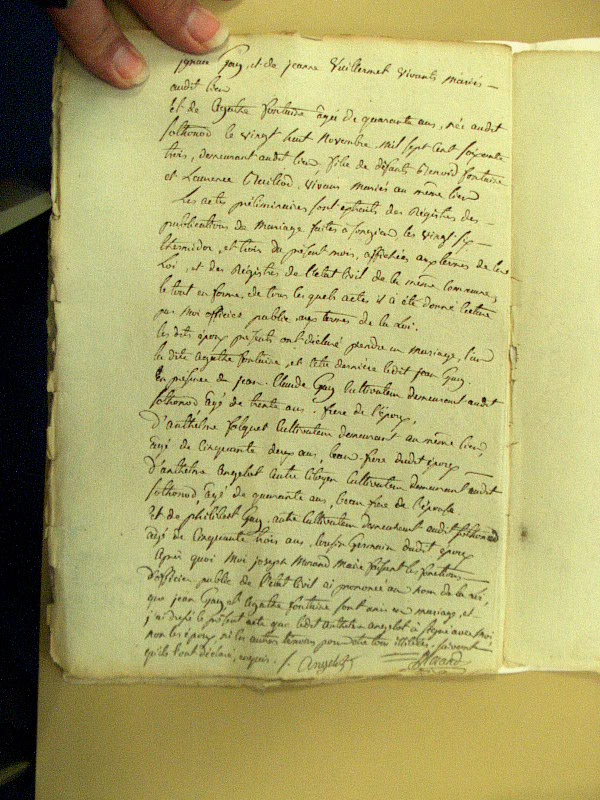 ignace Guy, et de jeanne Vuillermet vivants mariés
audit lieu
et de Agathe fontaine âgée de quarante ans, née audit
sothonod le vingt huit Novembre mil sept cent soixante
trois, demeurant audit lieu fille de défunts Benoid fontaine
et Laurence vivans mariés au même lieu
Les actes préliminaires sont extraits des Registres des
publications de Mariage faites à Songieu les vingt six
thermidor, et trois du présent mois, affichées aux termes de la
Loi, et des Régistres de l'état Civil de la même commune,
le tout en forme, de tous les quels actes il a été donné lecture
par Moi officier public aux termes de la Loi.
les dits époux présents ont déclaré prendre en Mariage, l'un
la dite Agathe fontaine, et cette dernière ledit jean Guy.
En présence de jean Claude Guy Cultivateur demeurant audit
sothonod âgé de trente ans. frere de l'époux,
D'anthelme Cultivateur demeurant au même lieu,
âgé de Cinquante deux ans, beau frere dudit époux
D'anthelme angelot autre Citoyen Cultivateur demeurant audit
sothonod, âgé de quarante ans, beau frere de l'épouse
Et de philibert Guy autre Cultivateur demeurant audit sothonod
âgé de Cinquante trois ans, Cousin Germain dudit époux
Après quoi Moi joseph Morand Maire faisant les fonctions
D'officier public de l'état Civil ai prononcé au Nom de la Loi,
que jean Guy et Agathe fontaine sont unis en mariage, et
j'ai dressé le présent acte que ledit anthelme angelot a signé avec Moi
non les époux, ni les autres témoins pour être tous illitérés, suivant
qu'ils l'ont déclaré, requis. angelot Morand